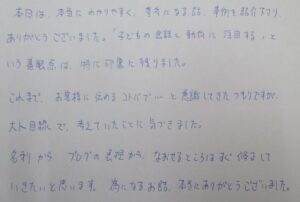 本日は、本当にわかりやすく、参考になる話、事例を紹介下さり、
ありがとうございました。「子どもの言語と動向に注目する」と
いう着眼点は、特に印象に残りました。
これまで、お客様に伝わるコトバで…と意識してきたつもりですが、
大人目線で、考えていたことに気づきました。
名刺から ブログの表現から、なおせるところはすぐ修正して
いきたいと思います。為になるお話、本当にありがとうございました。